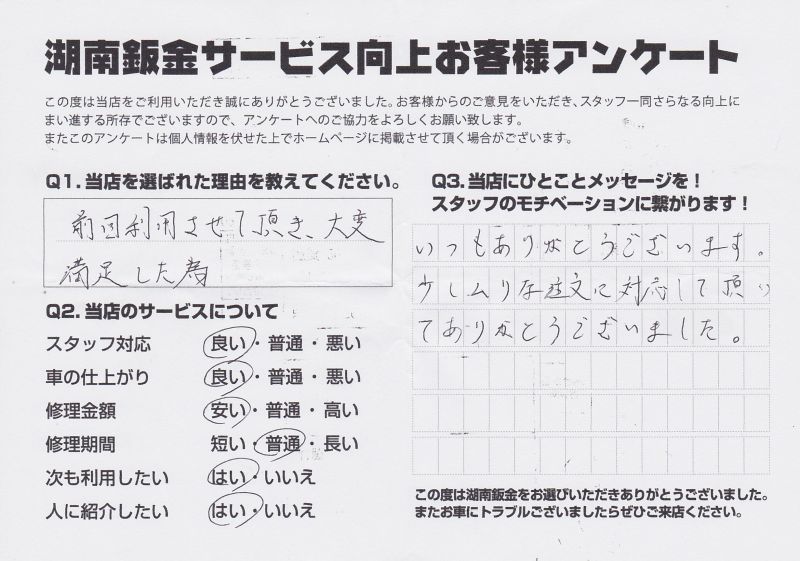 湖南鈑金サービス向上お客様アンケート
この度は当店をご利用いただき誠にありがとうございました。お客様からのご意見をいただき、スタッフ一同さらなる向上に
まい進する所存でございますので、アンケートへのご協力をよろしくお願い致します。
またこのアンケートは個人情報を伏せた上でホームページに掲載させて頂く場合がございます。
Q1.当店を選ばれた理由を教えてください。
前回利用させて頂き、大変
満足した為
Q2.当店のサービスについて
スタッフ対応 良い・普通・悪い
車の仕上がり 良い・普通・悪い
修理金額 安い・普通・高い
修理期間 短い・普通・長い
次も利用したい はい・いいえ
人に紹介したい はい・いいえ
Q3.当店にひとことメッセージを！
スタッフのモチベーションに繋がります！
いつもありがとうございます。
少しムリな注文に対応して頂い
てありがとうございました。
この度は湖南鈑金をお選びいただきありがとうございました。
またお車にトラブルございましたらぜひご来店ください。